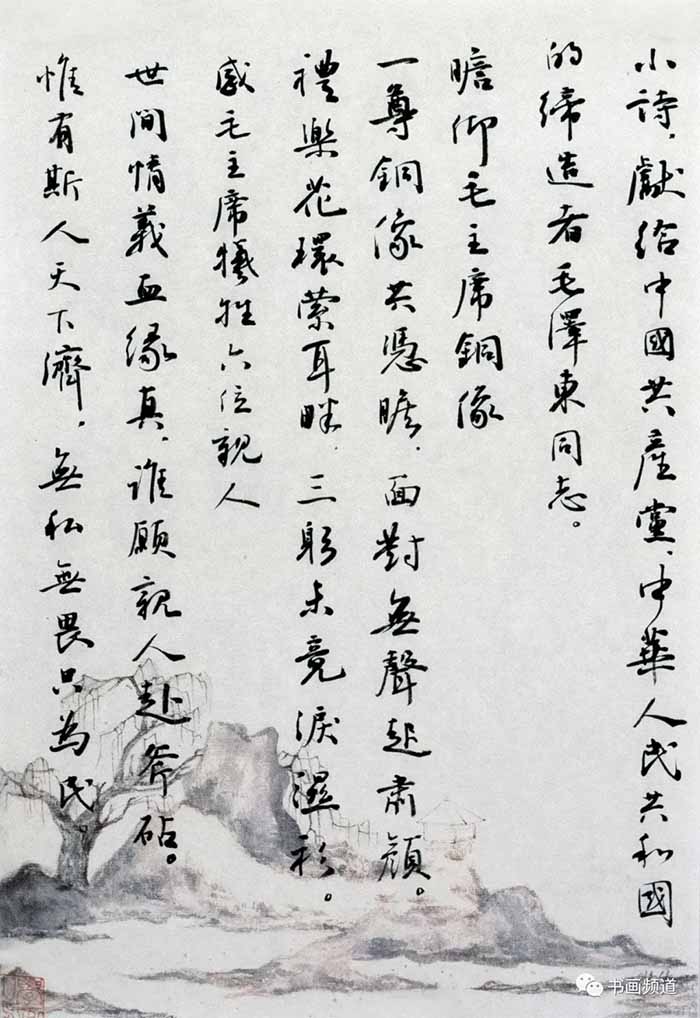 小詩，獻给中國共產黨、中華人民共和國
的締造者毛澤東同志。
瞻仰毛主席銅像
一尊銅像共憑瞻，面對無聲起肅顏。
禮樂花環縈耳畔，三躬未竟淚濕衫。
感毛主席犧牲六位親人
世間情義血缘真，誰願親人赴斧砧。
惟有斯人天下濟，無私無畏只為民。
书画频道